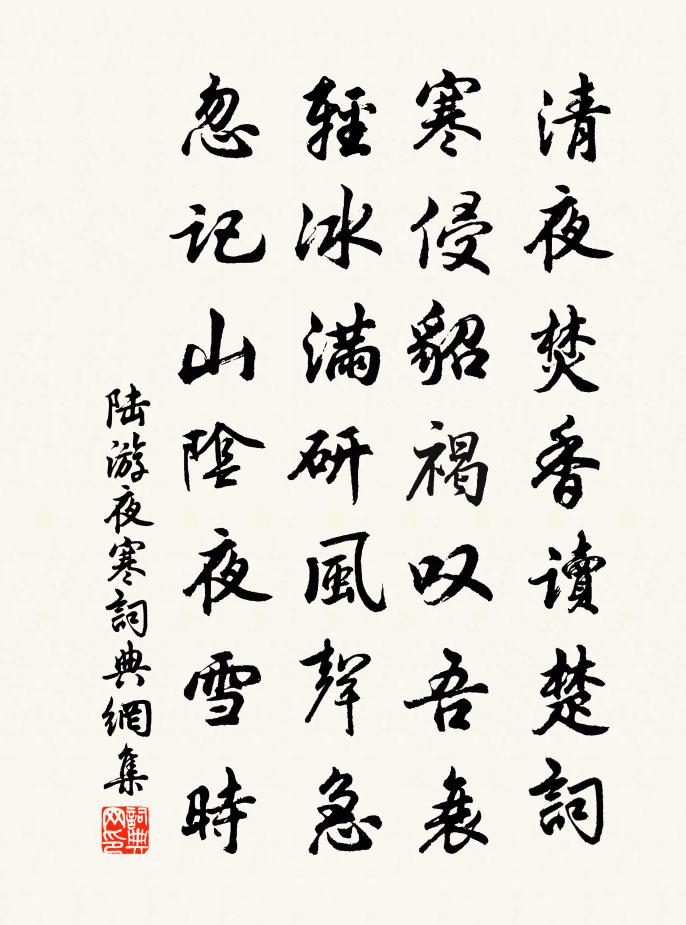 清夜焚香读楚詞
寒侵貂褐叹吾衰
輕冰滿研風聲急
忽记山陰夜雪時
陆游夜寒詞典網集
詞典网印